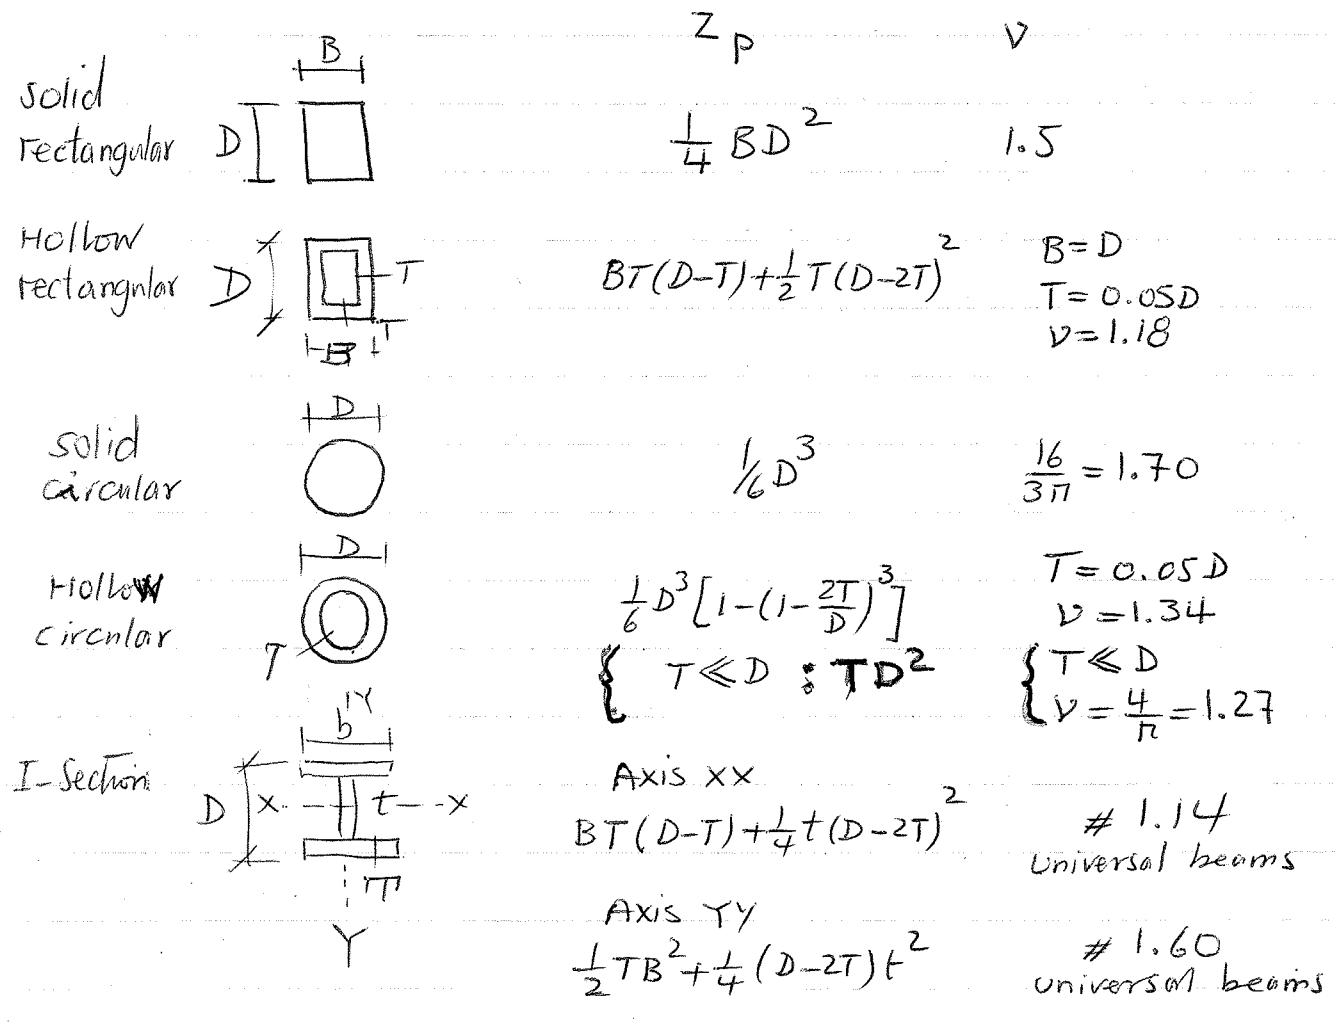 Z_p ν
B
solid
rectangular D 1/4 BD² 1.5
Hollow
rectangular D T BT(D-T)+1/2 T(D-2T)² B=D
T=0.05D
T
B
ν=1.18
D
solid
circular 1/6 D³ 16/3π = 1.70
D
Hollow
circular 1/6 D³[1-(1-2T/D)³] T=0.05D
ν=1.34
T
{ T≪D : TD² { T≪D
ν=4/π=1.27
Y
b
I-Section Axis XX
D X t X BT(D-T)+1/4 t(D-2T)² # 1.14
universal beams
T
Axis YY
Y 1/2 TB²+1/4 (D-2T)t² # 1.60
universal beams